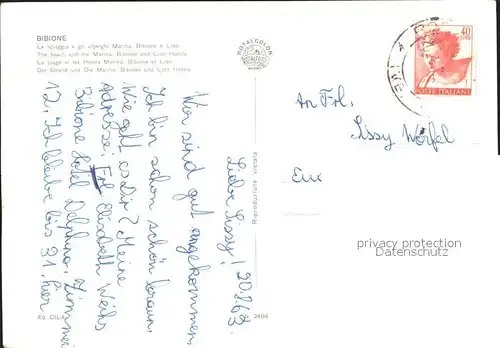 BIBIONE
La spiaggia e gli alberghi Marina, Bibione e Lido
The beach and the Marina, Bibione and Lido Hotels
La plage et les Hotels Marina, Bibione et Lido
Der Strand und die Marina, Bibione und Lido Hotels
ROTALCOLOR
ROTALFOTO
MILANO
40
LIRE
POSTE ITALIANE
An Frl.
Sissy
privacy protection
Datenschutz
Riproduzione vietata
Liebe Sissy! 20.8.63.
Wir sind gut angekommen,
Ich bin schon schön braun.
Wie geht es Dir? Meine
Adresse: Frl Elisabeth
Bibione Hotel Delphin, Zimmer
12. Ich bleibe bis 31. hier
Ed. DILA
2484